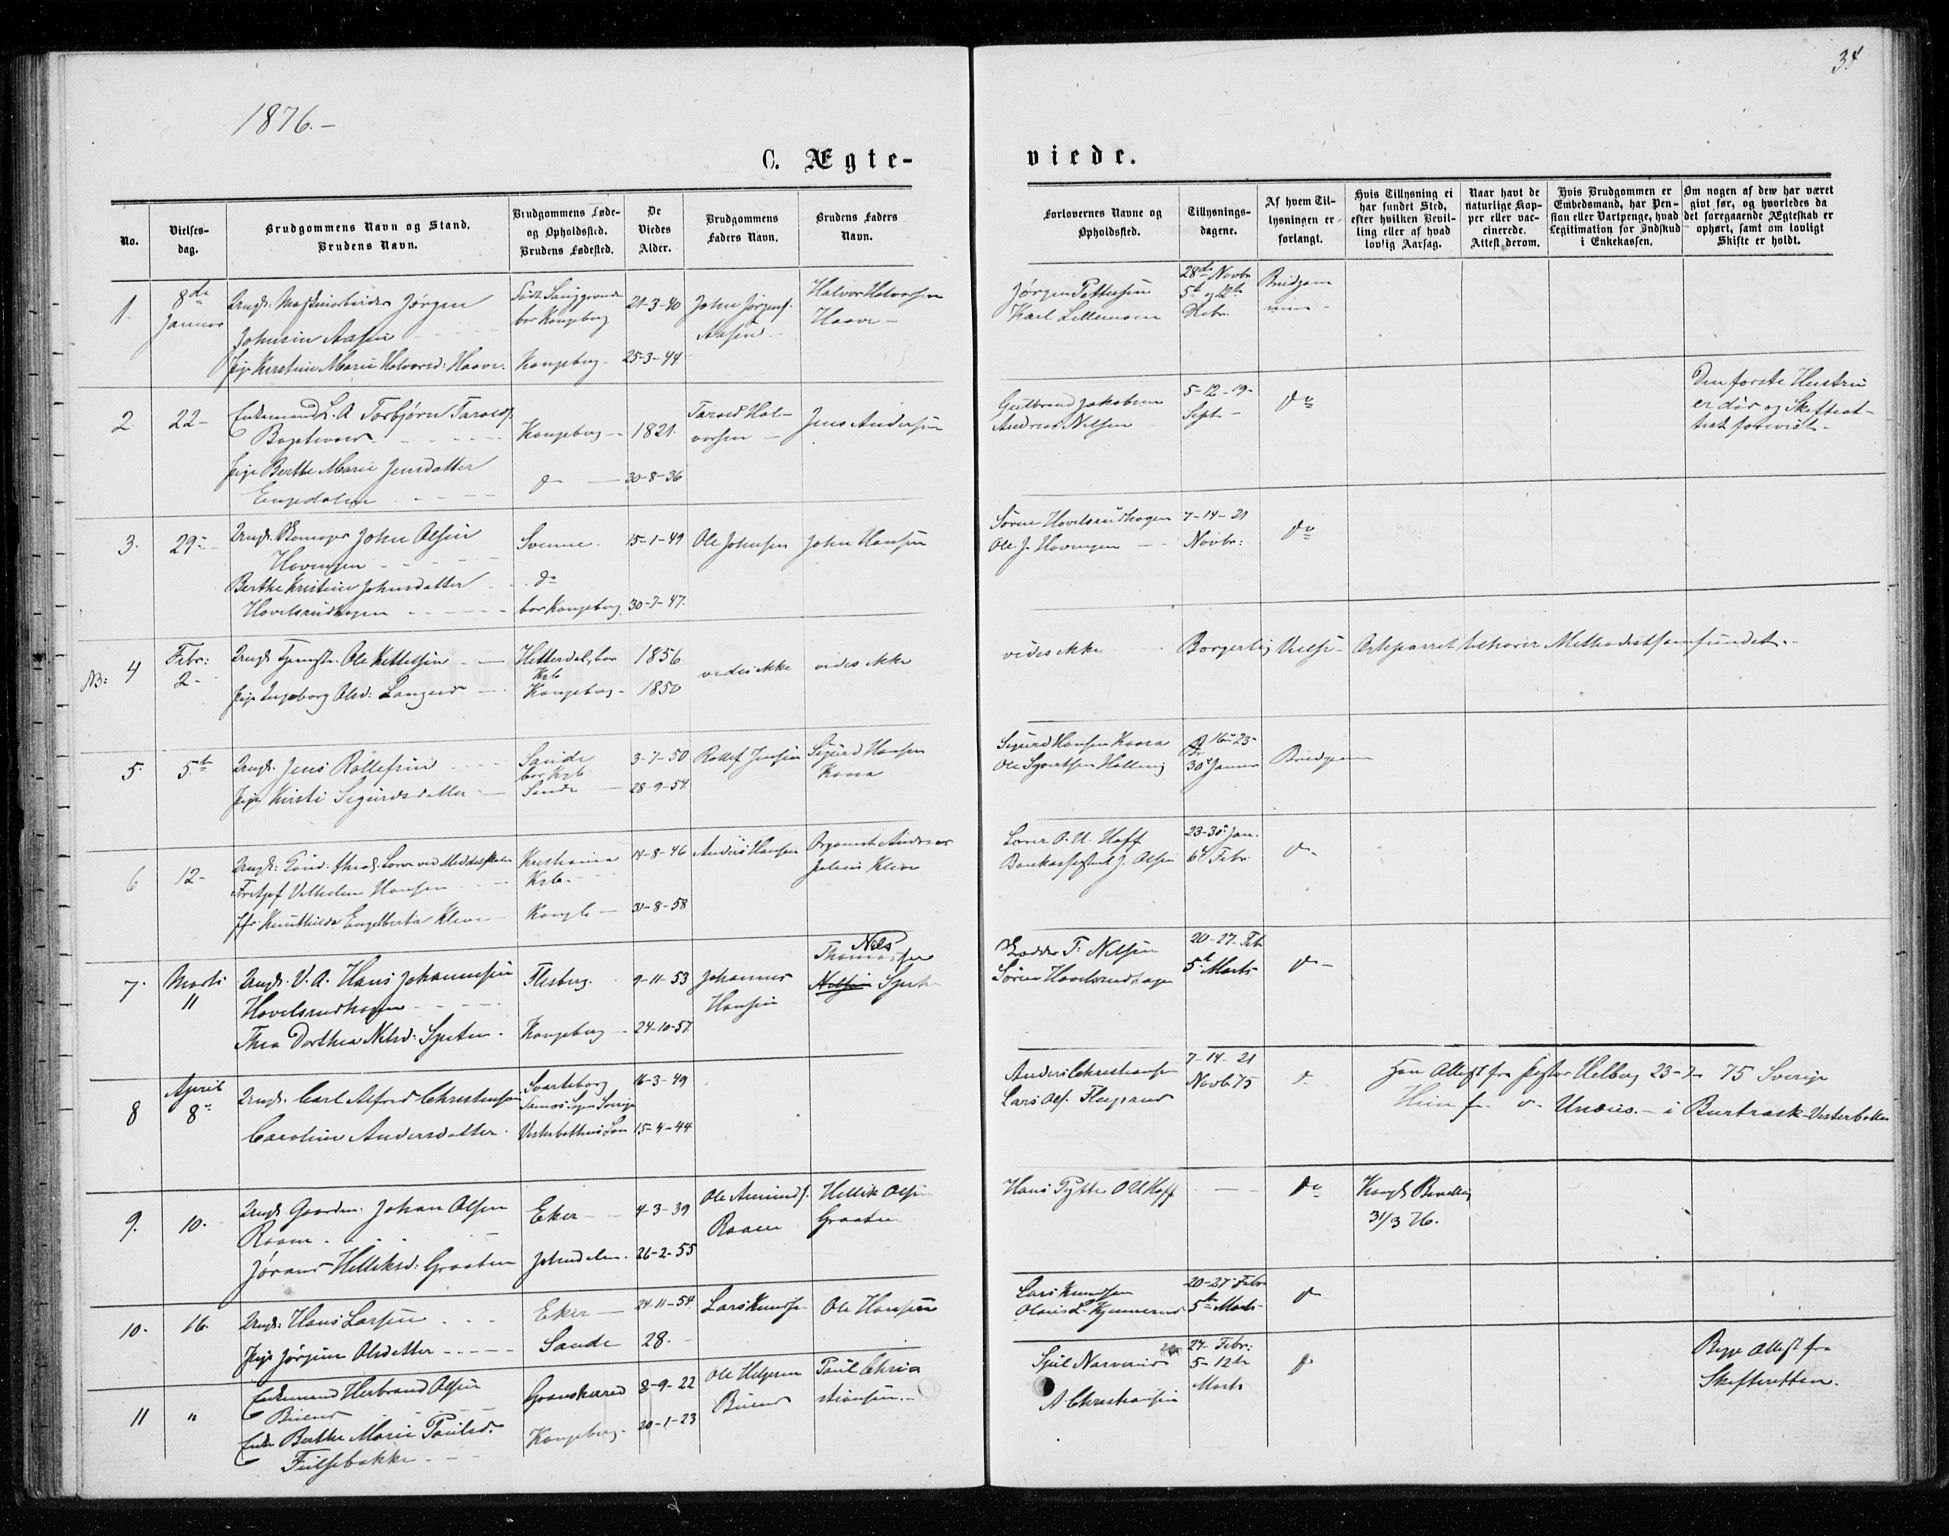 34
1876.-
C. Ægte-
viede.
No.
Vielses-
dag.
Brudgommens Navn og Stand.
Brudens Navn.
Brudgommens Føde-
og Opholdsted.
Brudens Fødested.
De
Viedes
Alder.
Brudgommens
Faders Navn.
Brudens Faders
Navn.
Forlovernes Navne og
Opholdsted.
Tillysnings-
dagene.
Af hvem Til-
lysningen er
forlangt.
Hvis Tillysning ei
har fundet Sted,
efter hvilken Bevil-
ling eller af hvad
lovlig Aarsag.
Naar havt de
naturlige Kop-
per eller vac-
cinerede.
Attest derom.
Hvis Brudgommen er
Embedsmand, har Pen-
sion eller Vartpenge, hvad
Legitimation for Indskud
i Enkekassen.
Om nogen af dem har været
givt før, og hvorledes da
det foregaaende Ægteskab er
ophørt, samt om lovligt
Skifte er holdt.
1.
8de
Januar
Ungk. Jørgen
Johnsen Aasen
Pige Kirstine Marie Halvorsd: Haave.
bor Kongsberg
Kongsberg
21-3-40
25-3-44
John Jørgens.
Aasen
Halvor Halvorsen
Haave -
Jørgen Pettersen
Karl Lillemoen
28de Novbr
5te og 12te
Debr.
Brudgom
men -
2.
22-
Enkemand L.A. Torbjørn Taralds.
Pige Berthe Marie Jensdatter
Engedalen
Kongsberg -
do
1821.
30-8-36
Tarald Hal-
vorsen -
Jens Andersen
Gulbrand Jakobsen
Andreas Nilsen
5-12-19-
Sept -
do
Den første Hustru
er død og Skifteat-
test forevist.
3.
29-
Ungk. John Olsen
Hovengen
Berthe Kristine Johnsdatter
Hovelsrudhagen
Svenne.
do
bor Kongsberg.
15-1-49
30-7-47.
Ole Johnsen
John Hansen
Søren Hovelsrudhagen
Ole J. Hovengen
7-14-21
Novbr:
do
NB: 4
Febr:
2-
Ungk. Tjenestk. Ole Kittelsen
Pige Ingeborg Olsd: Langerud
Hitterdal, bor
Kgb
Kongsberg -
1856
1850
vides ikke
vides ikke
vides ikke
Borgerlig Vielse - Ægteparret tilhører Methodistsamfundet.
5.
5te
Ungk. Jens Rollefsen
Pige Kirsti Sigurdsdatter
Sande
bor Kgb.
Sande
3-7-50
28-9-54.
Rollef Jensen
Sigurd Hansen
Kaasa
Sigurd Hansen Kaasa
16-23-
30te Januar
Brudgom
6
12-
Vilhelm Hansen
Engelberta Kleve
Kristiania
Kgb.
Kongsb -
14-8-46
30-8-58
Anders Hansen
Organist Andreas
Julius Kleve
Lærer O. U. Hoff
J. Olsen
23-30te Jan.
6te Febr
do
7.
Marts
11
Ungk. V.A. Hans Johannesen
Hovelsrudhagen
Thea Dorthea Nilsd: Speten.
Flesberg.
Kongsberg -
9-11-53
24-10-57.
Johannes
Hansen
Nils
Thomassen
Nilsen Speten
T. Nilsen
Søren Hovelsrudhagen
20-27-Feb
5te Marts
do
8
April
8de
Ungk. Carl Alfred Christensen
Caroline Andersdatter.
Svarteborg
Tanums Sogn Sverige
Vesterbottens Len
16-3-49
15-4-44
Anders Christiansen
Lars Ols.
7-14-21
Novb 75
do
Han Attest fra Pastor Helberg 23- 75 Sverige
Hun fr. do Unæus. - i Burtrask Vesterbotten
9.
10.
Ungk. Gaardm. Johan Olsen
Raaen
Jøran Helliksd: Graaten
Eker
Jondalen.
4-3-39
26-2-55
Ole Amunds.
Raaen
Hellik Olsen
Graaten
Hans Pytte O U Hoff
do
Kongl. Bevillg
31/3 76.
10.
16.
Ungk: Hans Larsen
Pige Jørgine Olsdatter
Eker
Sande
24-11-54.
28.
Lars Knudsen
Ole Hansen
Lars Knudsen
20-27 Febr
5te Marts
do
11
"
Enkemand Herbrand Olsen
Enke Berthe Marie Paulsd.
Gransherred
Kongsberg.
8-9-22
20-1-23
Ole Helgesen
Paul Chri
stiansen.
A. Christiansen
27- Febr:
5-12te
Marts
do
Begge Attest fra
Skifteretten.